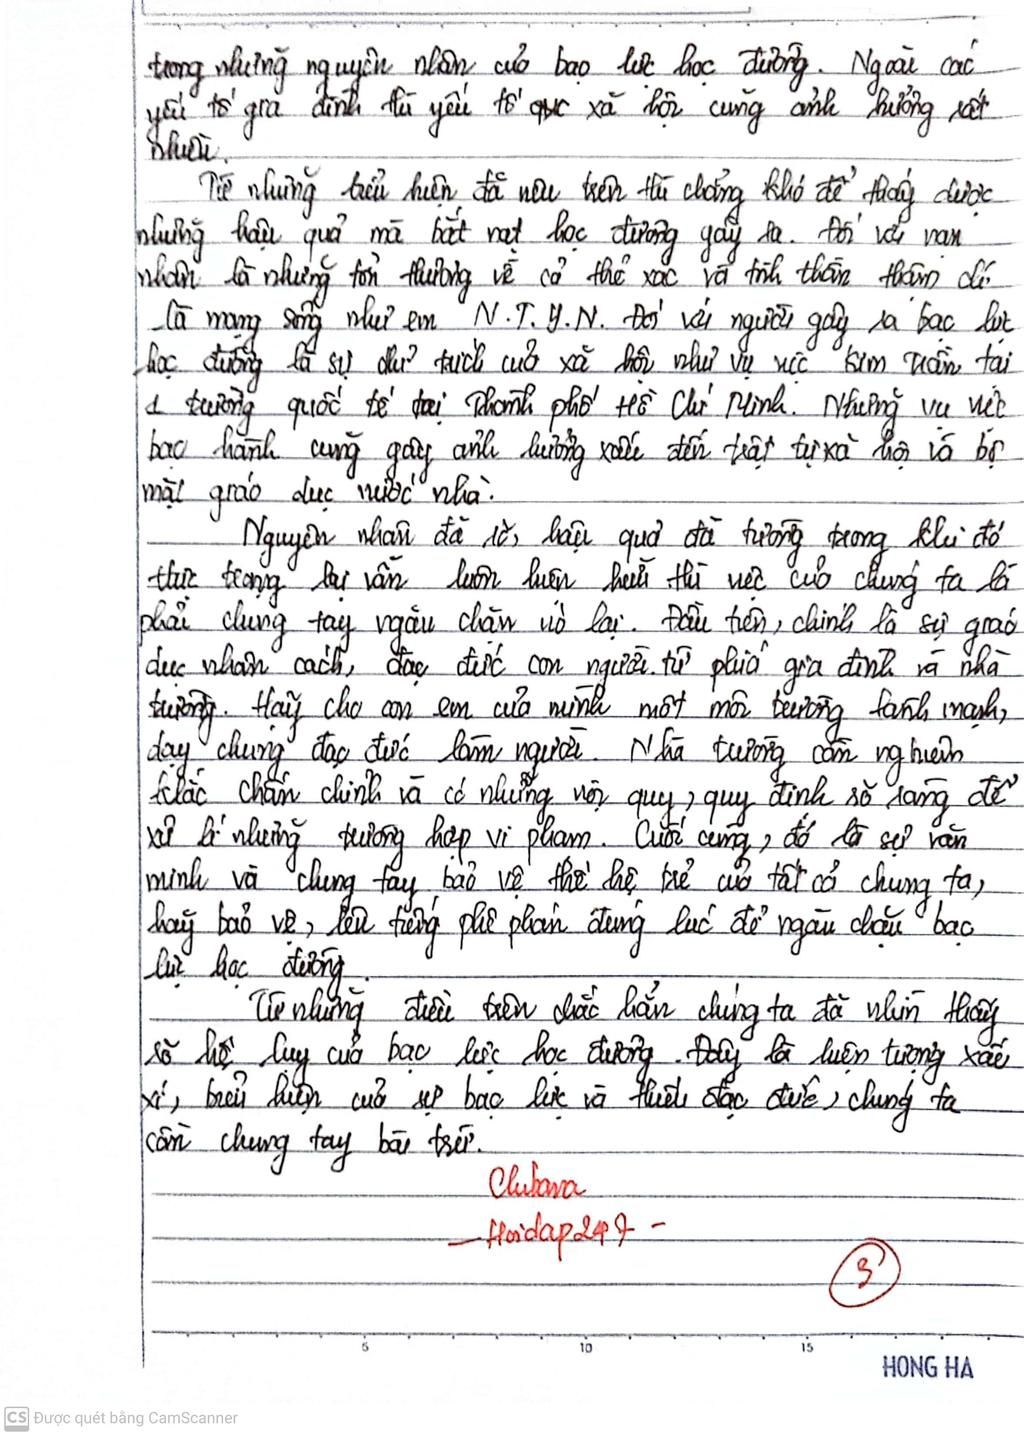 trong những nguyên nhân của bạo lực học đường. Ngoài các
yếu tố gia đình thì yếu tố xã hội cũng ảnh hưởng rất
nhiều.
Từ những biểu hiện đã nêu trên thì chẳng khó để thấy được
những hậu quả mà bắt nạt học đường gây ra. Đối với nạn
nhân là những tổn thương về cả thể xác và tinh thần thậm chí
là mạng sống như em N.T.Y.N. Đối với người gây ra bạo lực
học đường là sự chỉ trích của xã hội như vụ việc tại
1 trường quốc tế tại Thành phố Hồ Chí Minh. Những vụ việc
bạo hành cũng gây ảnh hưởng xấu đến trật tự xã hội và bộ
mặt giáo dục nước nhà.
Nguyên nhân đã rõ, hậu quả đã tường trong khi đó
thực trạng lại vẫn luôn hiện hữu thì việc của chúng ta là
phải chung tay ngăn chặn nó lại. Đầu tiên, chính là sự giáo
dục nhân cách, đạo đức con người từ phía gia đình và nhà
trường. Hãy cho con em của mình một môi trường lành mạnh,
dạy chúng đạo đức làm người. Nhà trường cần nghiêm
khắc chấn chỉnh và có những nội quy, quy định rõ ràng để
xử lí những trường hợp vi phạm. Cuối cùng, đó là sự văn
minh và chung tay bảo vệ thế hệ trẻ của tất cả chúng ta,
hãy bảo vệ, lên tiếng phê phán đúng lúc để ngăn chặn bạo
lực học đường.
Từ những điều trên chắc hẳn chúng ta đã nhìn thấy
rõ hệ lụy của bạo lực học đường. Đây là hiện tượng xấu
xí, biểu hiện của sự bạo lực và thiếu đạo đức, chúng ta
cần chung tay bài trừ.
Hoidap247
3
5 10 15
HONG HA
CS Được quét bằng CamScanner